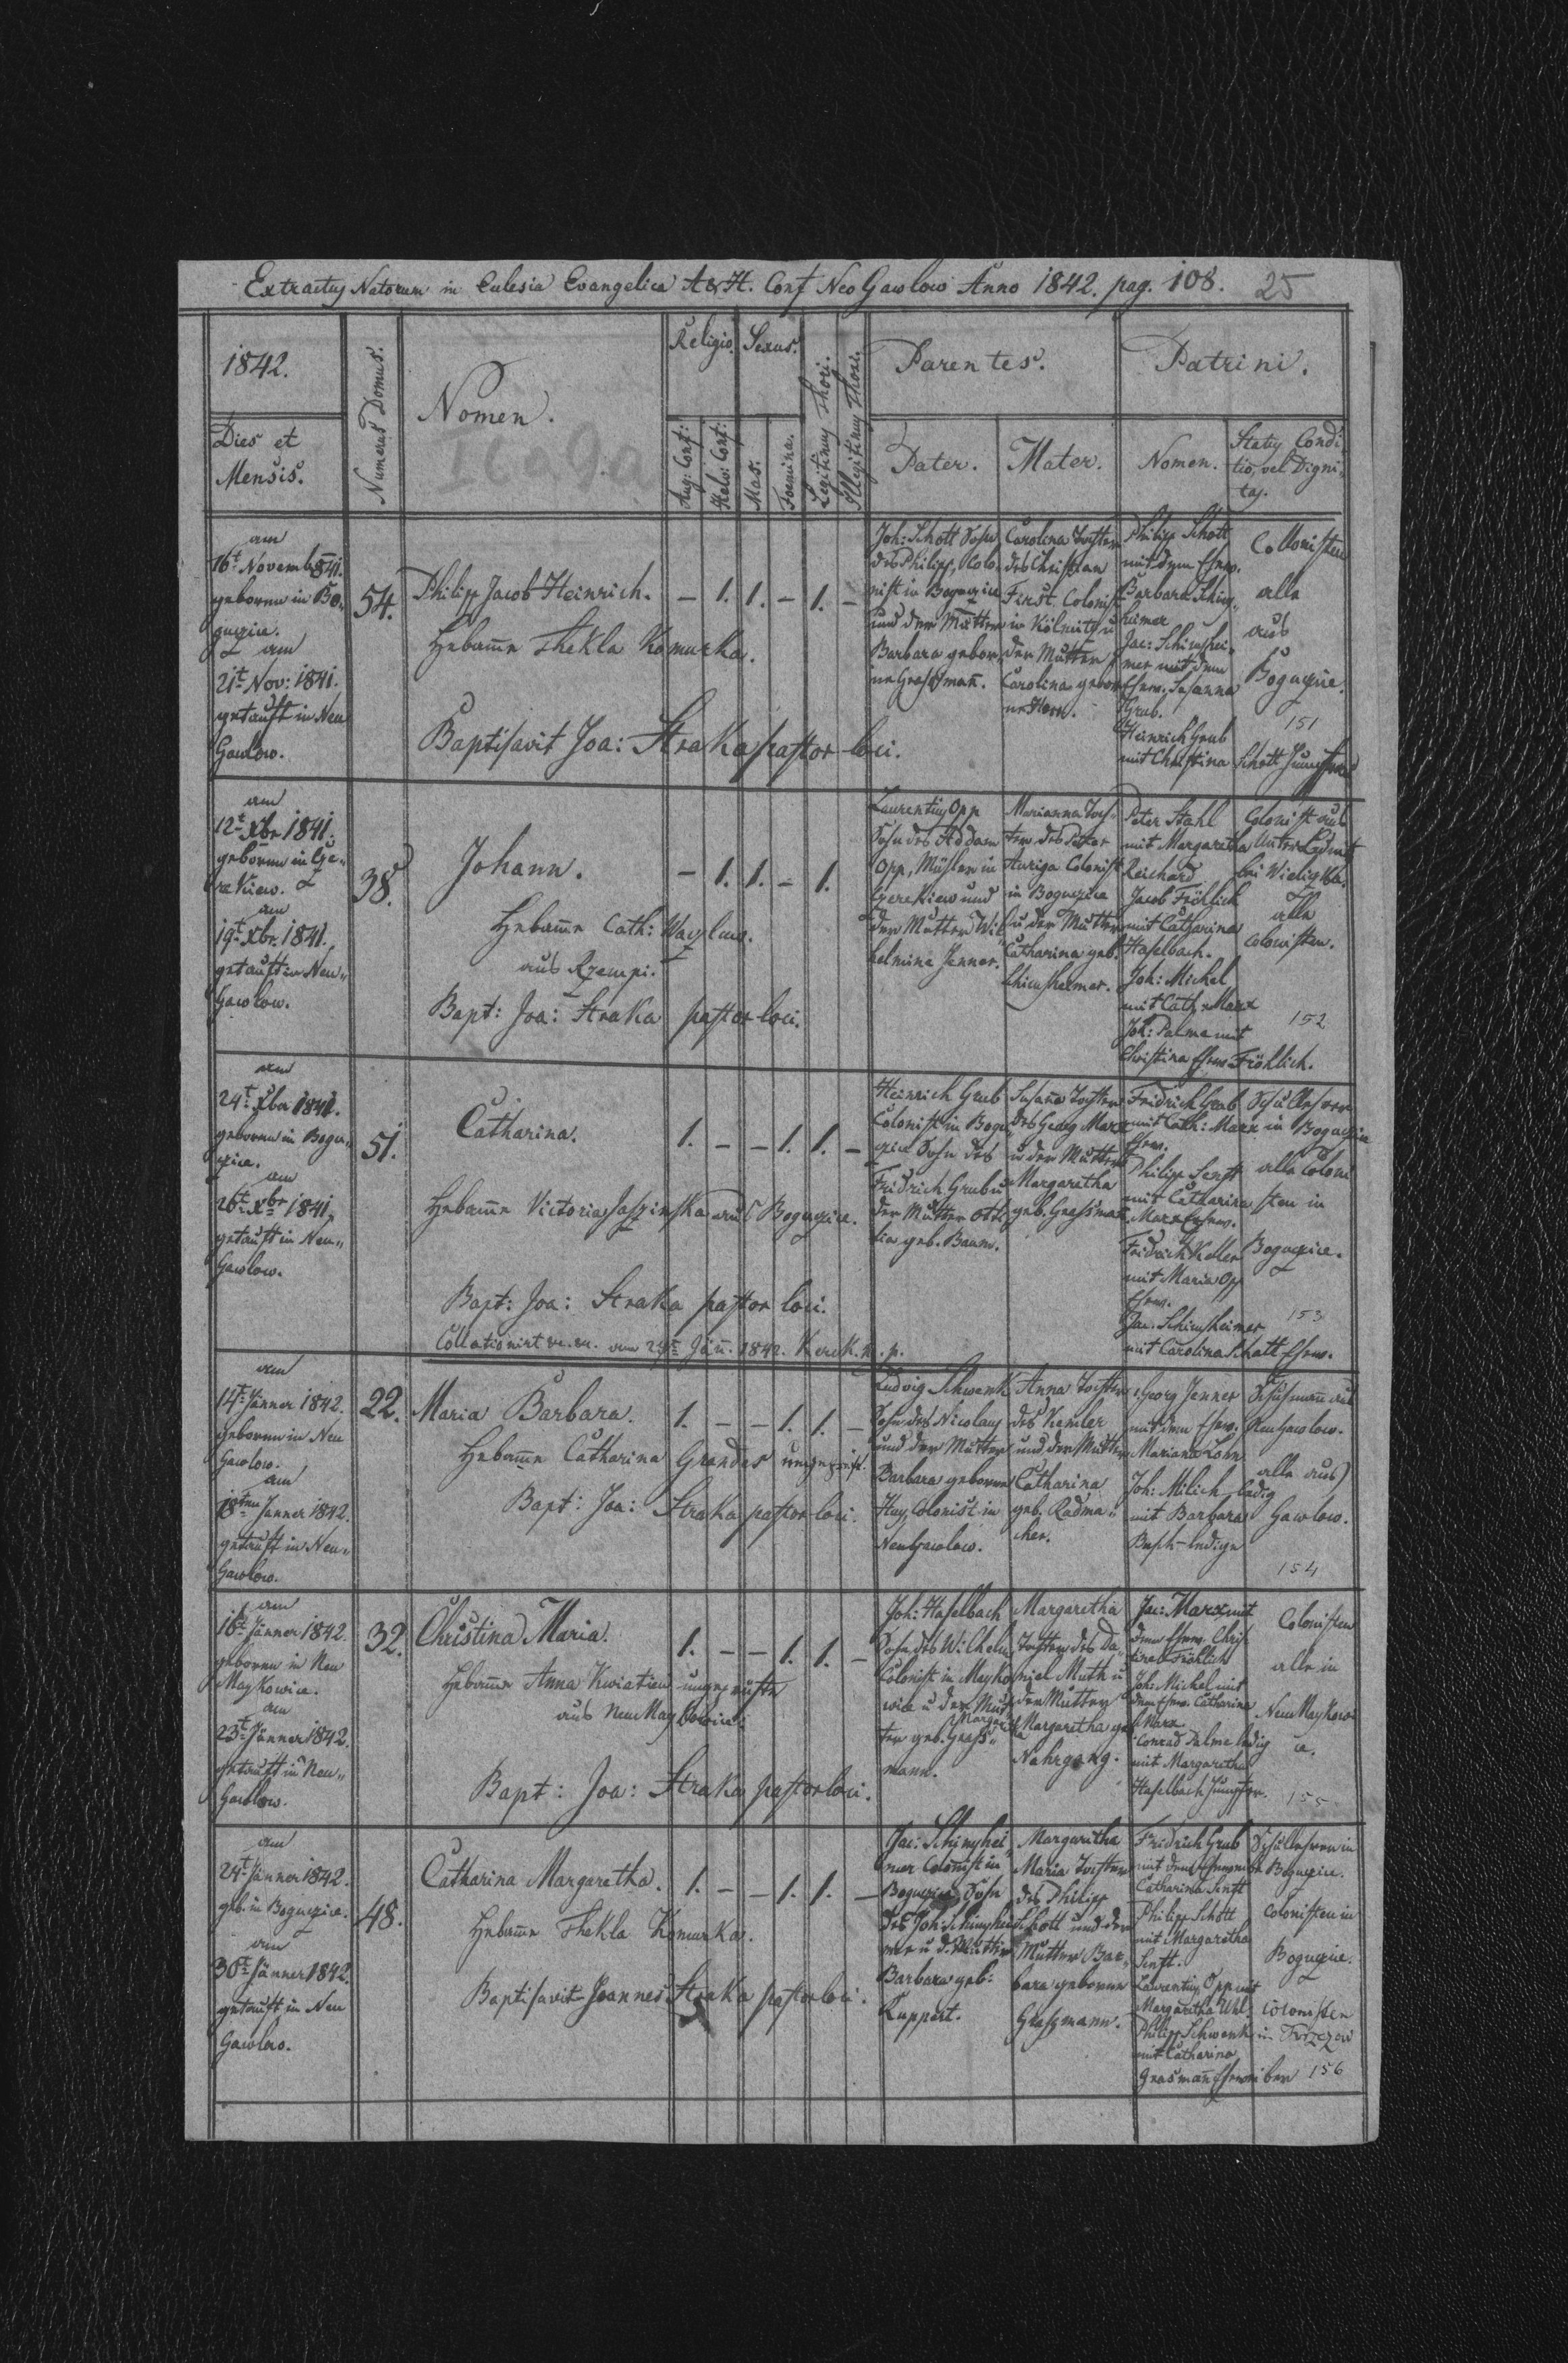 Extractus Natorum in Eclesia Evangelica A & H. Conf Neo Gawlow Anno 1842. pag. 108.
25
1842.
Dies et
Mensis.
Numerus Domus.
Nomen.
Religio.
Aug: Conf:
Helv: Conf:
Sexus.
Mas.
Foemina.
Legitimus Thori.
Illegitimus Thori.
Parentes.
Pater.
Mater.
Patrini.
Nomen.
Status Condi„
tio, vel Digni„
tas.
am
16t Novemb 841.
geboren in Bo„
guçice.
am
21t Nov: 1841.
getauft in Neu
Gawlow.
54.
Philipp Jacob Heinrich.
– 1. 1. – 1. –
Hebame Thekla Komurka.
Baptisavit Joa: Straka pastor loci.
Joh: Schott Sohn
des Philipp, Colo„
nist in Boguçice
und der Mutter
Barbara gebor„
ne Grassmañ.
Carolina Tochter
des Christian
Colonist
in Kolmitz u
der Mutter
Carolina gebor
ne Horn.
Philipp Schott
mit dem Ehew.
Barbara Schims„
heimer
Jac: Schimshei„
mer mit dem
Ehew. Susanna
Grub.
Heinrich Grub
mit Christina Schott Jungfrau
Collonisten
alle
aus
Boguçice.
151
am
12t Xbr 1841.
geboren in Ge„
rekiew.
am
19t Xbr. 1841.
getauft in Neu„
Gawlow.
38.
Johann.
– 1. 1. – 1.
Hebame Cath:
aus Rzempi.
Bapt: Joa: Straka pastor loci.
Laurentius Opp
Sohn des Addam
Opp, Müller in
Gerekiew und
der Mutter Wil„
helmine Jenner.
Marianna Toch„
ter des Peter
Auriga Colonist
in Boguçice
u der Mutter
Catharina geb.
Schimsheimer.
Peter Stahl
mit Margaretha
Reichard
Jacob Fröhlich
mit Catharina
Haselbach.
Joh: Michel
mit Cath: Marx
Joh: Palme mit
Christina Ehew: Fröhlich.
Colonist aus
Unter
bei Wielizka
alle
Colonisten.
152
am
24t Xber 1841.
geboren in Bogu„
çice.
am
26t Xbr 1841.
getauft in Neu„
Gawlow.
51.
Catharina.
1. – – 1. 1. –
Hebame Victoria Jaszinska aus Boguçice.
Bapt: Joa: Straka pastor loci.
Collationirt am 24t Jän. 1842.
Heinrich Grub
Colonist in Bogu„
çice Sohn des
Fridrich Grub u
der Mutter Otti
lia geb. Baum.
Susana Tochter
des Georg Marx
u der Mutter
Margaretha
geb. Grassmañ
Fridrich Grub
mit Cath: Marx
Ehew.
Philipp Senft
mit Catharina
Marx Ehew.
Fridrich Keller
mit Maria Opp
Ehew.
Jac. Schimsheimer
mit Carolina Schott Ehew.
Schullehrer
in Boguçice
alle Coloni
sten in
Boguçice.
153
am
14t Jänner 1842.
geboren in Neu
Gawlow.
am
18ten Janner 1842.
getauft in Neu„
Gawlow.
22.
Maria Barbara.
1. – – 1. 1. –
Hebame Catharina Grandes ungeprüft.
Bapt: Joa: Straka pastor loci.
Ludvig Schwenk
Sohn des Nicolaus
und der Mutter
Barbara geboren
Hay, Colonist in
Neu Gawlow.
Anna Tochter
des Kemler
und der Mutter
Catharina
geb. Radma„
cher.
Georg Jenner
mit dem Ehew.
Mariana Rohr
Joh: Milich ledig
mit Barbara
Basch ledige
Schuhmañ aus
Neu Gawlow.
alle aus
Gawlow.
154
am
18t Jänner 1842.
geboren in Neu
Maykowice.
am
23t Jänner 1842.
getauft in Neu„
Gawlow.
32.
Christina Maria.
1. – – 1. 1. –
Hebame Anna Kwiatien ungeprüfte
aus Neu Maykowice.
Bapt: Joa: Straka pastor loci.
Joh: Haselbach
Sohn des Wilhelm
Colonist in Mayko
wice u der Mut
Margaretha
ter geb. Grass„
mann.
Margaretha
Tochter des Da„
niel Muth u
der Mutter
Margaretha geb
Nahrgang.
Jac: Marx mit
dem Ehew. Chris
tina Fröhlich
Joh: Michel mit
dem Ehew. Catharina
Marx
Conrad Palme ledig
mit Margaretha
Haselbach Jungfer.
Colonisten
alle in
Neu Maykow
ice.
155
am
24t Jänner 1842.
geb. in Boguçice.
am
30t Jänner 1842.
getauft in Neu
Gawlow.
48.
Catharina Margaretha.
1. – – 1. 1. –
Hebame Thekla Komurka.
Baptisavit Joannes Straka pastor loci.
Jac: Schimshei„
mer Colonist in
Boguçice, Sohn
des Joh: Schimshei
mer u d. Mutter
Barbara geb:
Ruppert.
Margaritha
Maria Tochter
des Philipp
Schott und der
Mutter Bar„
bara geboren
Grassmann.
Fridrich Grub
mit dem Eheweibe
Catharina Senft
Philipp Schott
mit Margaretha
Senft.
Laurentius Opp mit
Margaritha Uhl.
Philipp Schwenk
mit Catharina
Grasmañ Eheweiber
Schullehrer in
Boguçice.
Colonisten in
Boguçice.
Colonisten
in Trzczow
156